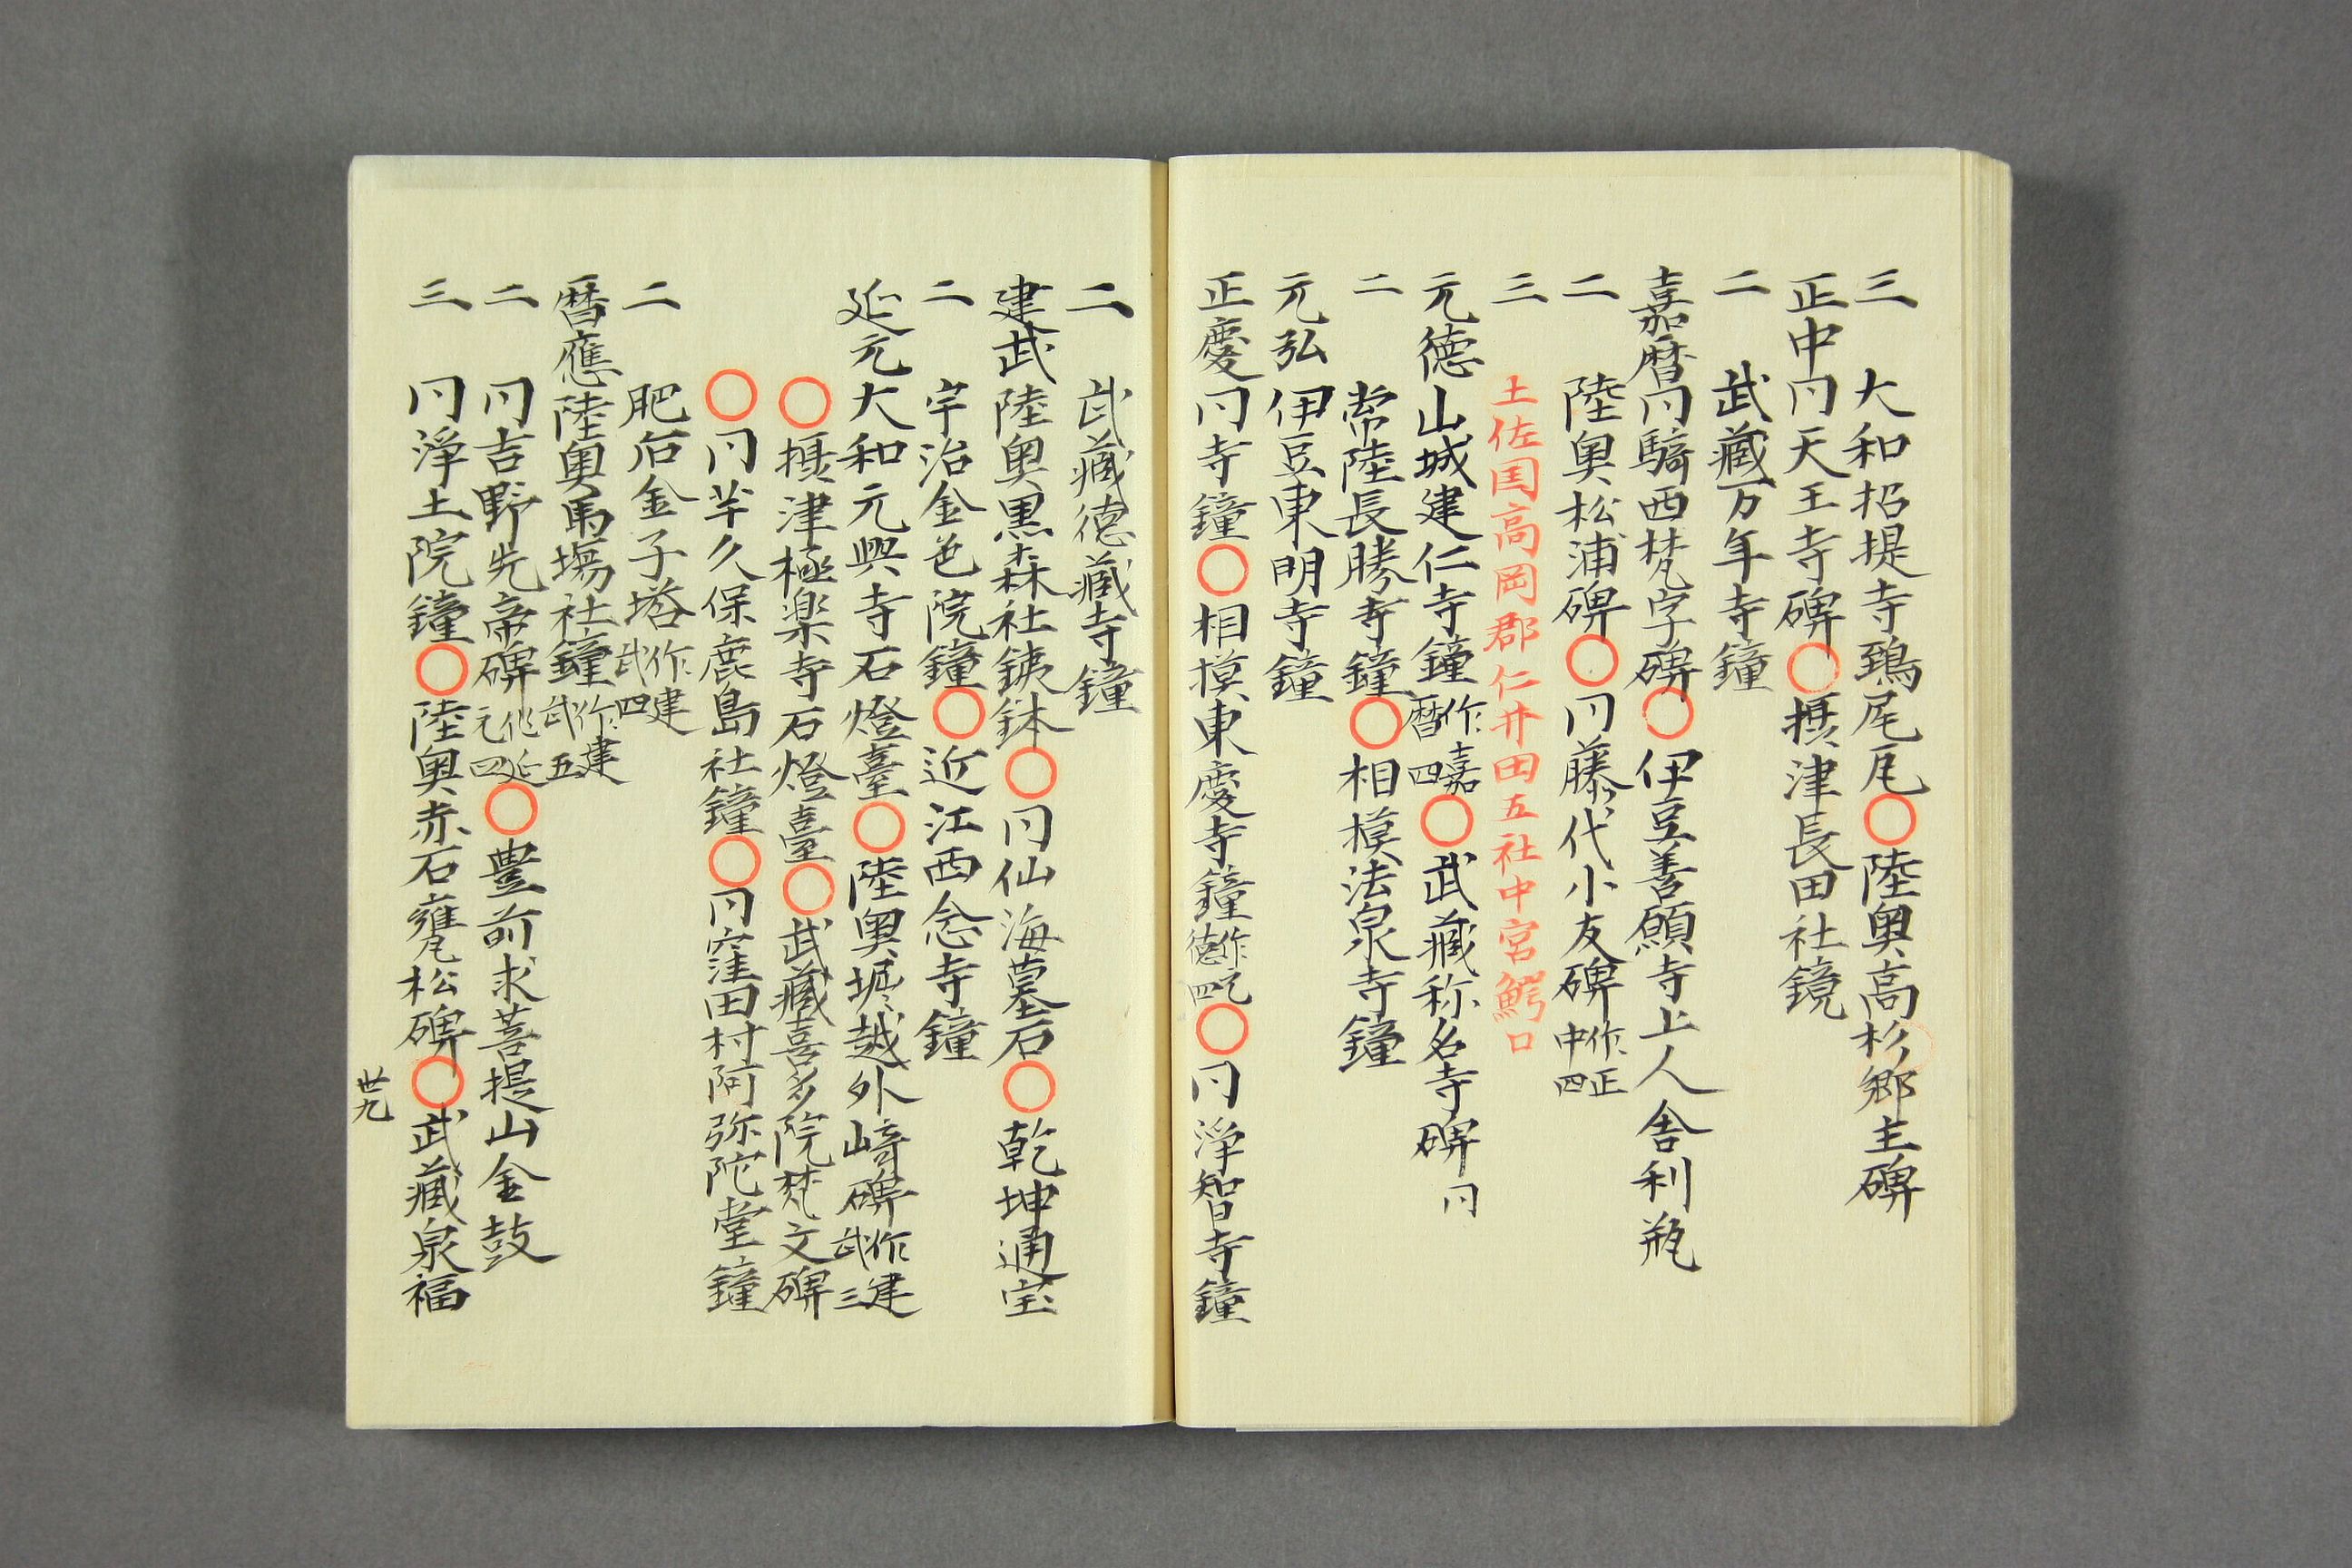 三 大和招提寺鵄尾瓦○陸奥高杉郷主碑
正中 冋天王寺碑○摂津長田社鏡
二 武蔵万年寺鐘
嘉暦 冋騎西梵字碑○伊豆善願寺上人舎利瓶
二 陸奥松浦碑○冋藤代小友碑 作正中四
三 土佐国高岡郡仁井田五社中宮鰐口
元徳 山城建仁寺鐘 作嘉暦四○武蔵称名寺碑 冋
二 常陸長勝寺鐘○相模法泉寺鐘
元弘 伊豆東明寺鐘
正慶 冋寺鐘○相模東慶寺鐘 作元徳四○冋浄智寺鐘
二 武蔵徳蔵寺鐘
建武 陸奥黒森社銕鉢○冋仙海墓石○乾坤通宝
二 宇治金色院鐘○近江西念寺鐘
延元 大和元興寺石燈臺○陸奥堀越外崎碑 作建武三
○摂津極楽寺石燈臺○武蔵喜多院梵文碑
○冋羊久保鹿島社鐘○冋窪田村阿弥陀堂鐘
二 肥后金子塔 作建武四
暦應 陸奥馬塲社鐘 作建武五
二 冋吉野先帝碑 作延元四○豊前求菩提山金鼓
三 冋浄土院鐘○陸奥赤石甕松碑○武蔵泉福
卅九